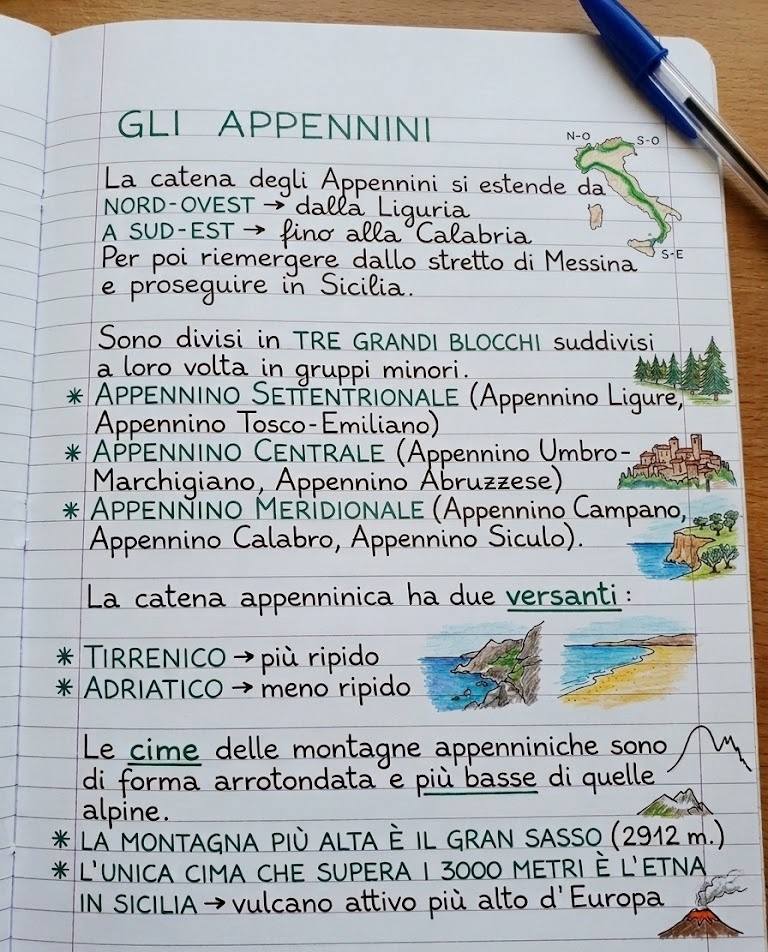 GLI APPENNINI
N-O
S-O
La catena degli Appennini si estende da
NORD-OVEST → dalla Liguria
A SUD-EST → fino alla Calabria
S-E
Per poi riemergere dallo stretto di Messina
e proseguire in Sicilia.
Sono divisi in TRE GRANDI BLOCCHI suddivisi
a loro volta in gruppi minori.
* APPENNINO SETTENTRIONALE (Appennino Ligure,
Appennino Tosco-Emiliano)
* APPENNINO CENTRALE (Appennino Umbro-
Marchigiano, Appennino Abruzzese)
* APPENNINO MERIDIONALE (Appennino Campano,
Appennino Calabro, Appennino Siculo).
La catena appenninica ha due versanti:
* TIRRENICO → più ripido
* ADRIATICO → meno ripido
Le cime delle montagne appenniniche sono
di forma arrotondata e più basse di quelle
alpine.
* LA MONTAGNA PIÙ ALTA È IL GRAN SASSO (2912 m.)
* L'UNICA CIMA CHE SUPERA I 3000 METRI È L'ETNA
IN SICILIA → vulcano attivo più alto d'Europa